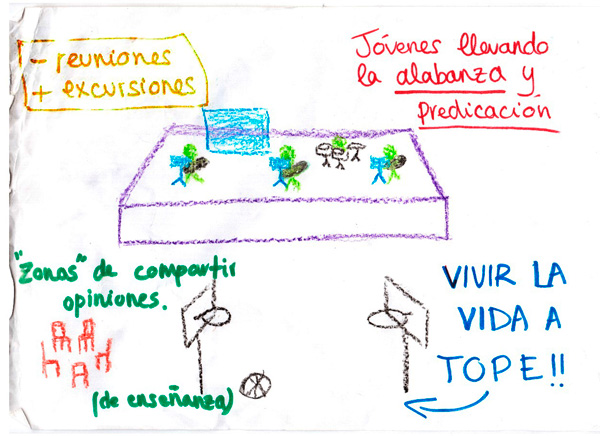 - reuniones
+ excursiones
Jóvenes llevando
la alabanza y
predicación
"Zonas" de compartir
opiniones.
(de enseñanza)
VIVIR LA
VIDA A
TOPE!!